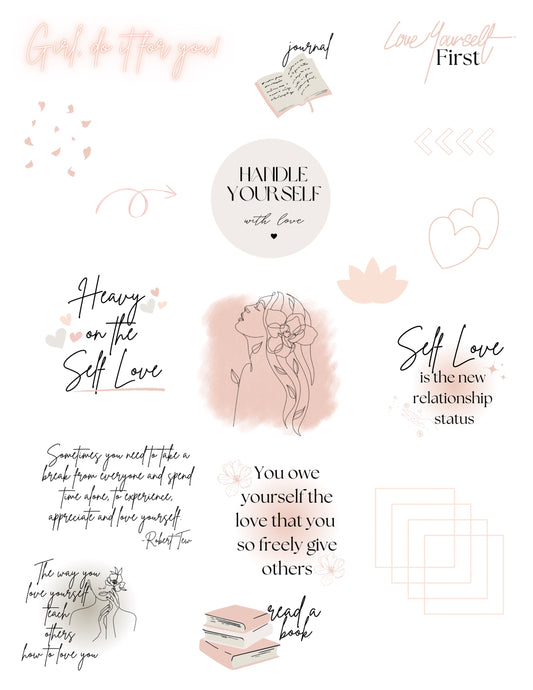 Girl, do it for you!
journal
Love Yourself
First
HANDLE
YOURSELF
with love
Heavy
on the
Self Love
Self Love
is the new
relationship
status
Sometimes you need to take a
break from everyone and spend
time alone, to experience,
appreciate and love yourself.
-Robert Tew
You owe
yourself the
love that you
so freely give
others
The way you
love yourself
teach
others
how to love you
read a
book